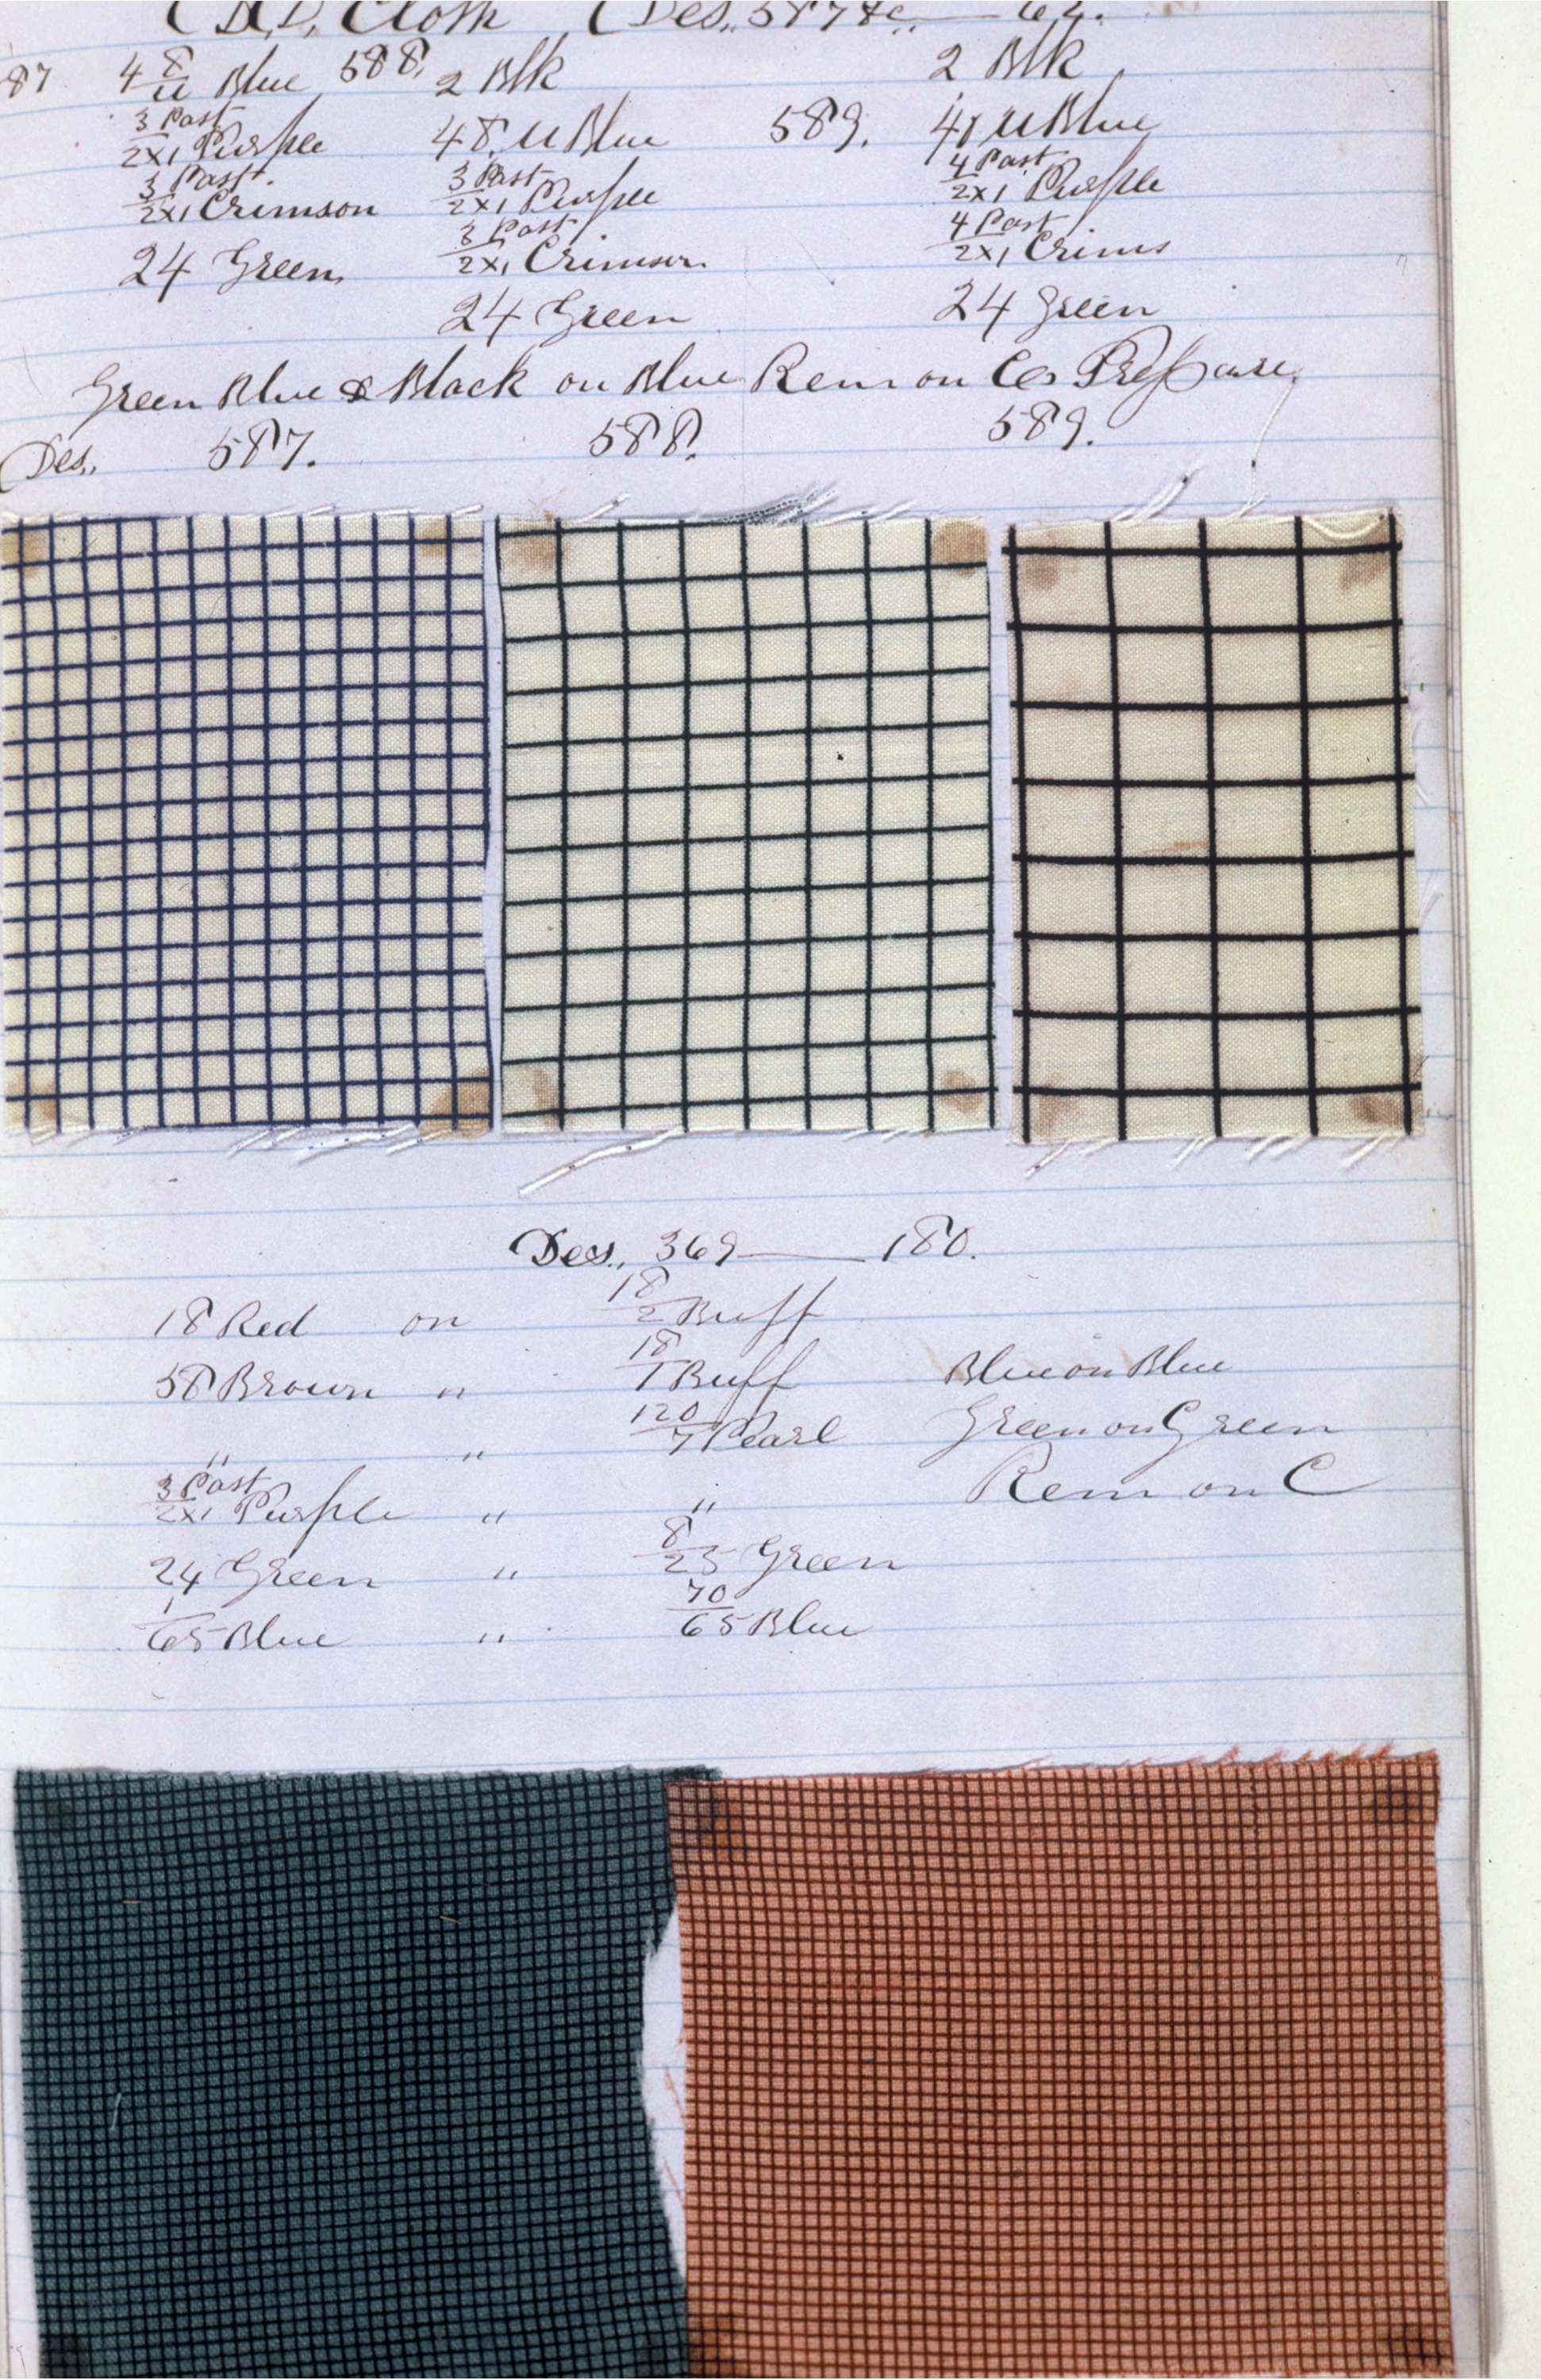 Cloth (Des., 587 &c. — 62.
87 4 8/u Blue 588. 2 Blk 2 Blk
3 Past / 2x1 Purple 48. u Blue 589. 41 u Blue
3 Past. / 2x1 Crimson 3 Past / 2x1 Purple 4 Past / 2x1 Purple
24 Green 3 Past / 2x1 Crimson 4 Past / 2x1 Crims
24 Green 24 Green
Green Blue & Black on Blue Rem on Co Prepare
Des., 587. 588. 589.
Des., 369 — 180.
18 Red on 18/2 Buff
58 Brown " 18/1 Buff Blue on Blue
" " 120/7 Pearl Green on Green
3 Past / 2x1 Purple " " Rem on C
24 Green " 8/25 Green
1/65 Blue " 70/65 Blue